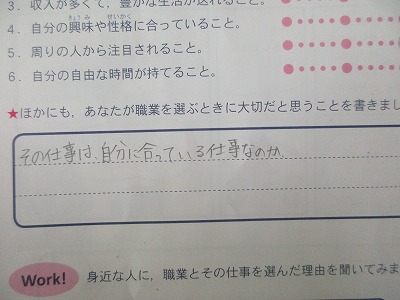 3．収入が多くて，豊かな生活が送れること。
4．自分の興味や性格に合っていること。
5．周りの人から注目されること。
6．自分の自由な時間が持てること。
★ほかにも，あなたが職業を選ぶときに大切だと思うことを書きまし
その仕事は、自分に合っている仕事なのか
Work! 身近な人に，職業とその仕事を選んだ理由を聞いてみま